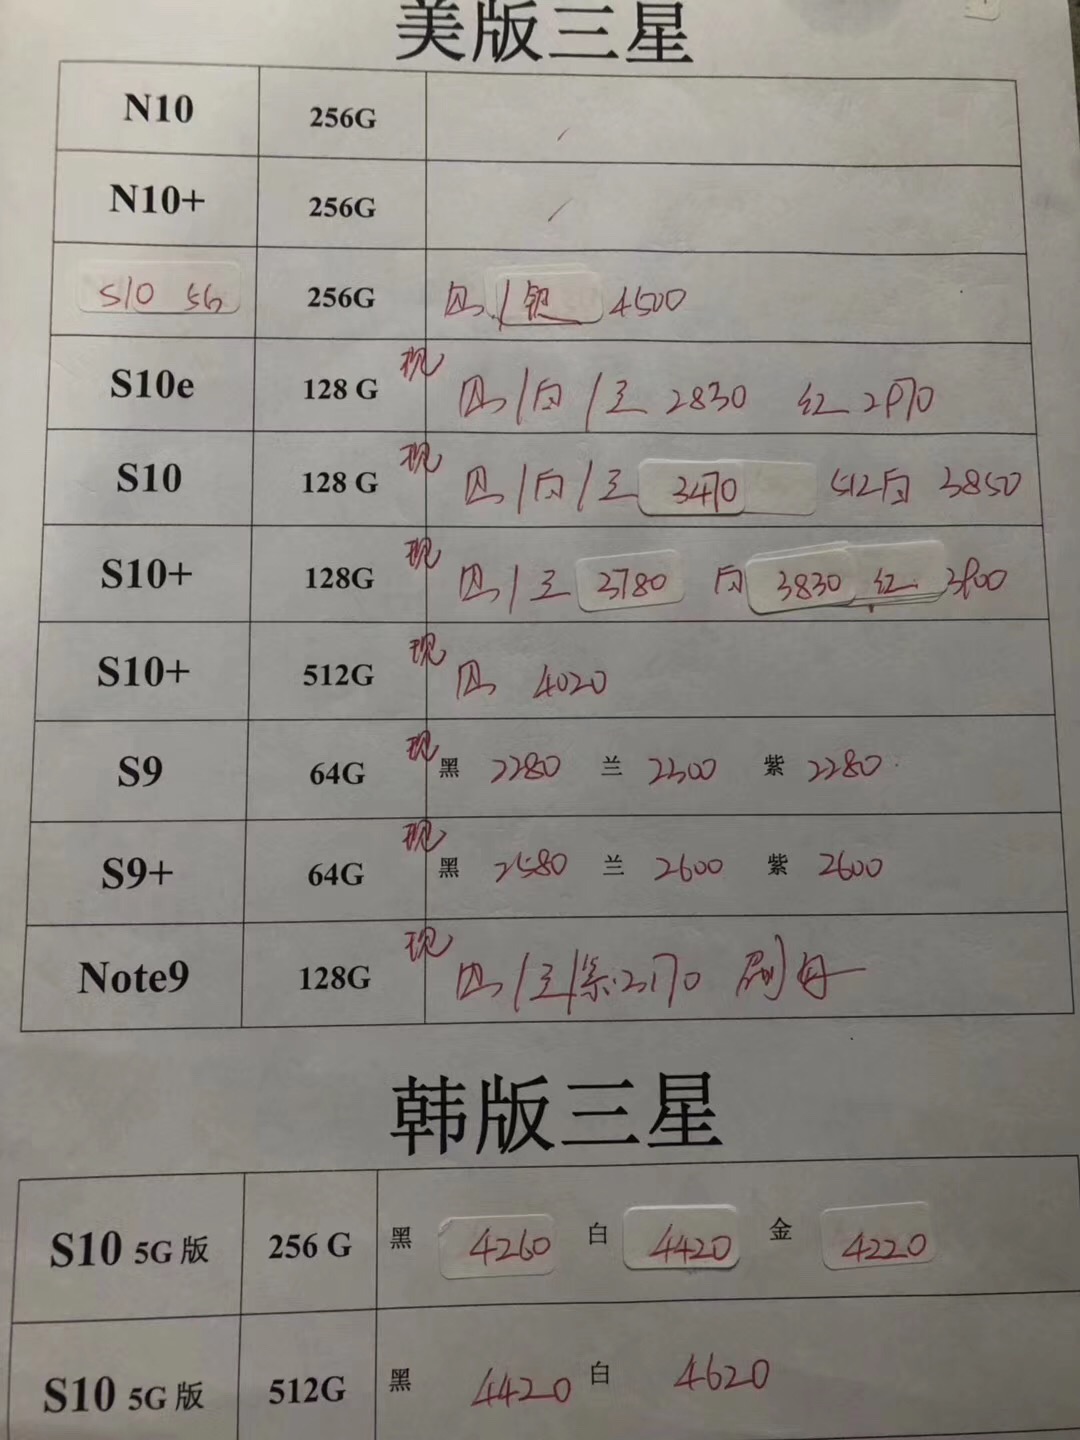 美版三星
N10 256G
N10+ 256G
S10 5G 256G 黑/银 4500
S10e 128 G 现 黑/白/兰 2830 红 2970
S10 128 G 现 黑/白/兰 3470 512白 3850
S10+ 128G 现 黑/兰 3780 白 3830 红 3900
S10+ 512G 现 黑 4020
S9 64G 现 黑 2280 兰 2300 紫 2280
S9+ 64G 现 黑 2580 兰 2600 紫 2600
Note9 128G 现 黑/兰/紫 3170
韩版三星
S10 5G 版 256 G 黑 4260 白 4420 金 4220
S10 5G 版 512G 黑 4420 白 4620